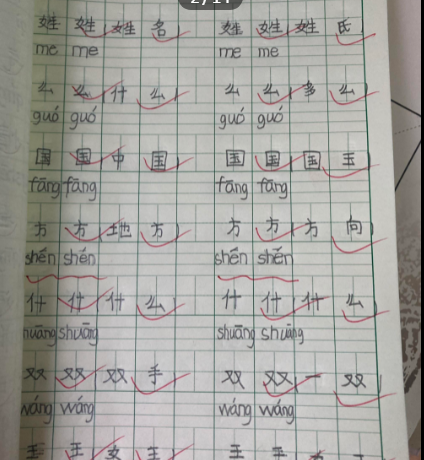 姓 姓 姓 名 姓 姓 姓 氏
me me me me
么 么 什 么 么 么 多 么
guó guó guó guó
国 国 中 国 国 国 国 王
fāng fāng fāng fāng
方 方 地 方 方 方 方 向
shén shén shén shén
什 什 什 么 什 什 什 么
huāng shuāng shuāng shuāng
双 双 双 手 双 双 一 双
wáng wáng wáng wáng
王 王 女 王 王 王